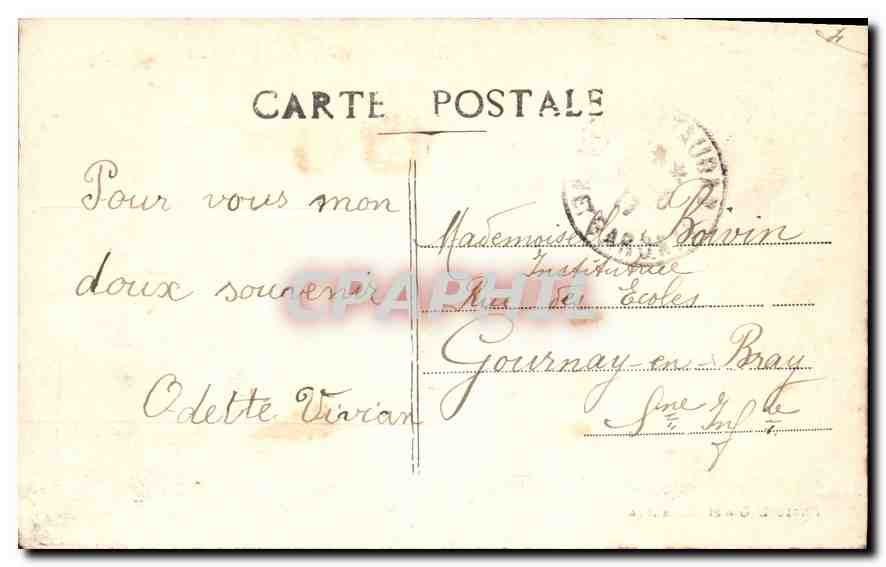 CARTE POSTALE
Pour vous mon
doux souvenir
Odette Vivian
Mademoiselle Boivin
Institutrice
Rue des Écoles
Gournay-en-Bray
Sne Infre
CPAPHIL